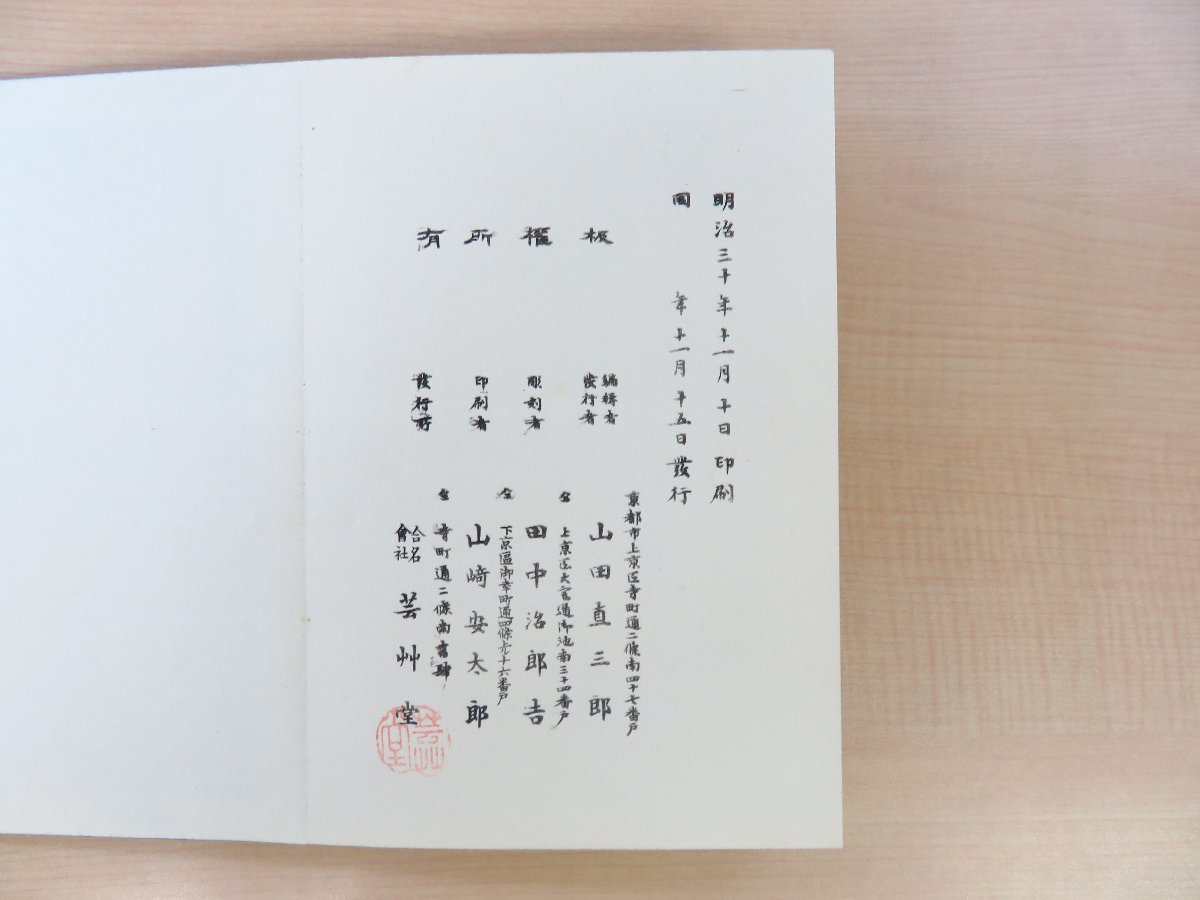 明治三十年十一月十日印刷
同年十一月十五日發行
板權所有
京都市上京區寺町通二條南四十七番戸
編輯者
發行者
山田直三郎
仝上京區大宮通御池南三十四番戸
彫刻者
田中治郎吉
仝下京區御幸町通四條六十六番戸
印刷者
山﨑安太郎
仝寺町通二條南書肆
發行所
合名
會社
芸艸堂
芸艸堂